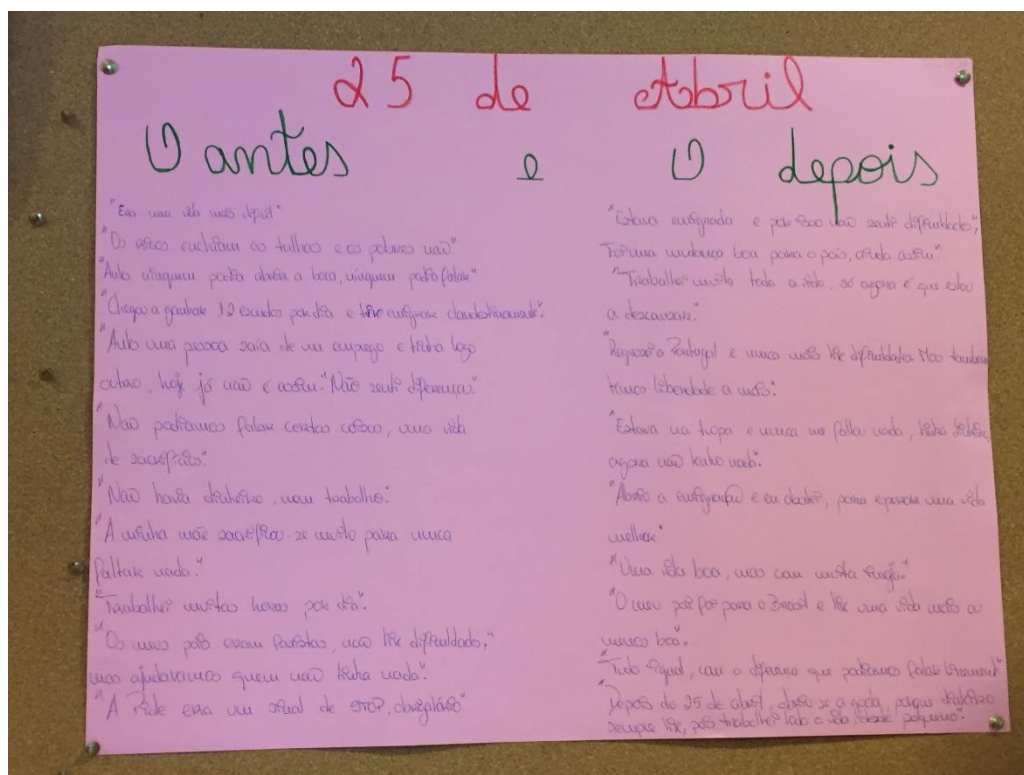 25 de Abril
O antes e o depois
"Era uma vida mais difícil"
"Os ricos enchiam as tulhas e os pobres não"
"Antes ninguém podia abrir a boca, ninguém podia falar"
"Chegou a ganhar 12 escudos por dia e tive emigrar clandestinamente".
"Antes uma pessoa saía de um emprego e tinha logo
outro, hoje já não é assim." "Não senti diferenças."
"Não podíamos falar certas coisas, uma vida
de sacrifícios".
"Não havia dinheiro, nem trabalho".
"A minha mãe sacrificou-se muito para nunca
faltar nada."
"Trabalhei muitas horas por dia".
"Os meus pais eram , não tive dificuldades,"
mas ajudávamos quem não tinha nada".
"A Pide era um sinal de STOP, obrigatório.
"Estava emigrada e por isso não senti dificuldades",
Foi uma mudança boa para o país, ainda assim."
"Trabalhei muito toda a vida, só agora é que estou
a descansar."
"Regressei a Portugal e nunca mais tive dificuldades. Mas também
temos liberdade a mais".
"Estava na tropa e nunca me faltou nada, tinha dinheiro,
agora não tenho nada".
"Abriu a emigração e eu , para uma vida
melhor"
"Uma vida boa, mas com muita "
"O meu pai foi para o Brasil e tive uma vida mais ou
menos boa".
"Tudo igual, com a diferença que podíamos falar livremente"
"Depois do 25 de abril, abriu-se a , porque dinheiro
sempre tive, pois trabalhei toda a vida, desde pequeno".